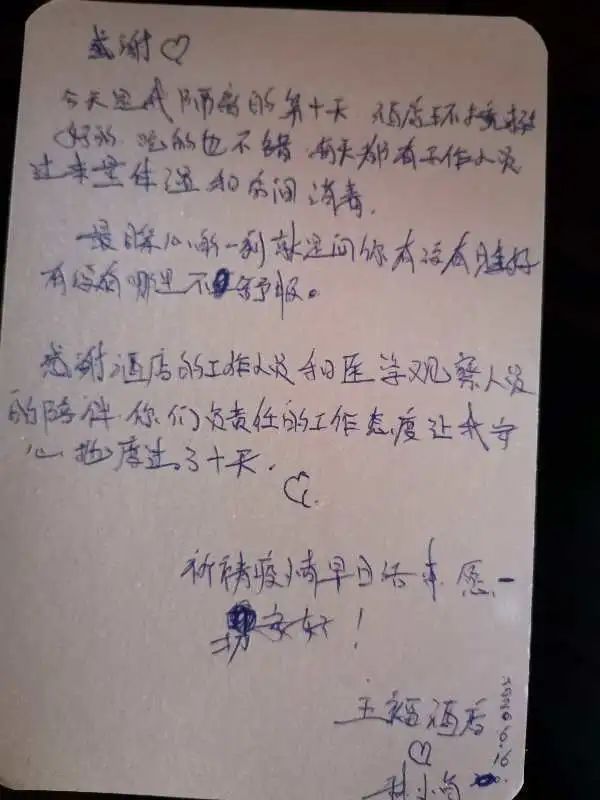 感谢♡
今天是我隔离的第十天 酒店环境挺
好的 吃的也不错 每天都有工作人员
过来量体温和房间消毒.
最暖心的一刻就是问你有没有睡好
有没有哪里不舒服。
感谢酒店的工作人员和医学观察人员
的陪伴.你们负责任的工作态度让我安
心地度过了十天.
♡.
祈祷疫情早日结束.愿一
切安好!
王福酒店
♡